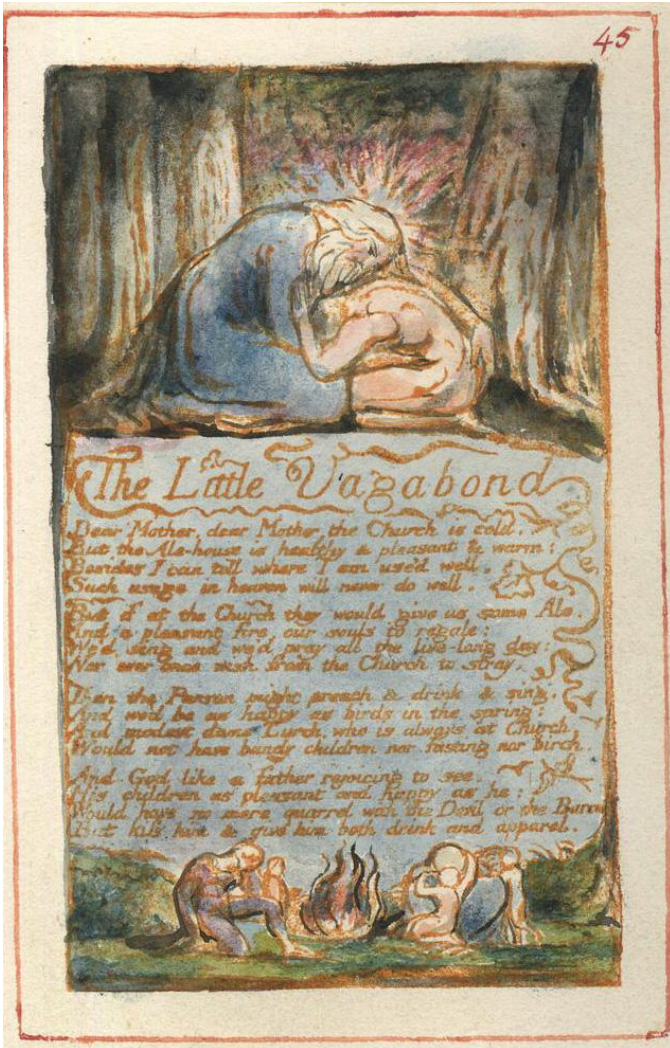 45
The Little Vagabond
Dear Mother, dear Mother, the Church is cold.
But the Ale-house is healthy & pleasant & warm:
Besides I can tell where I am use'd well.
Such usage in heaven will never do well.
But if at the Church they would give us some Ale.
And a pleasant fire our souls to regale:
We'd sing and we'd pray all the live-long day:
Nor ever once wish from the Church to stray.
Then the Parson might preach & drink & sing.
And we'd be as happy as birds in the spring:
And modest dame Lurch, who is always at Church
Would not have bandy children nor fasting nor birch.
And God like a father rejoicing to see.
His children as pleasant and happy as he:
Would have no more quarrel with the Devil or the Barrel
But kiss him & give him both drink and apparel.